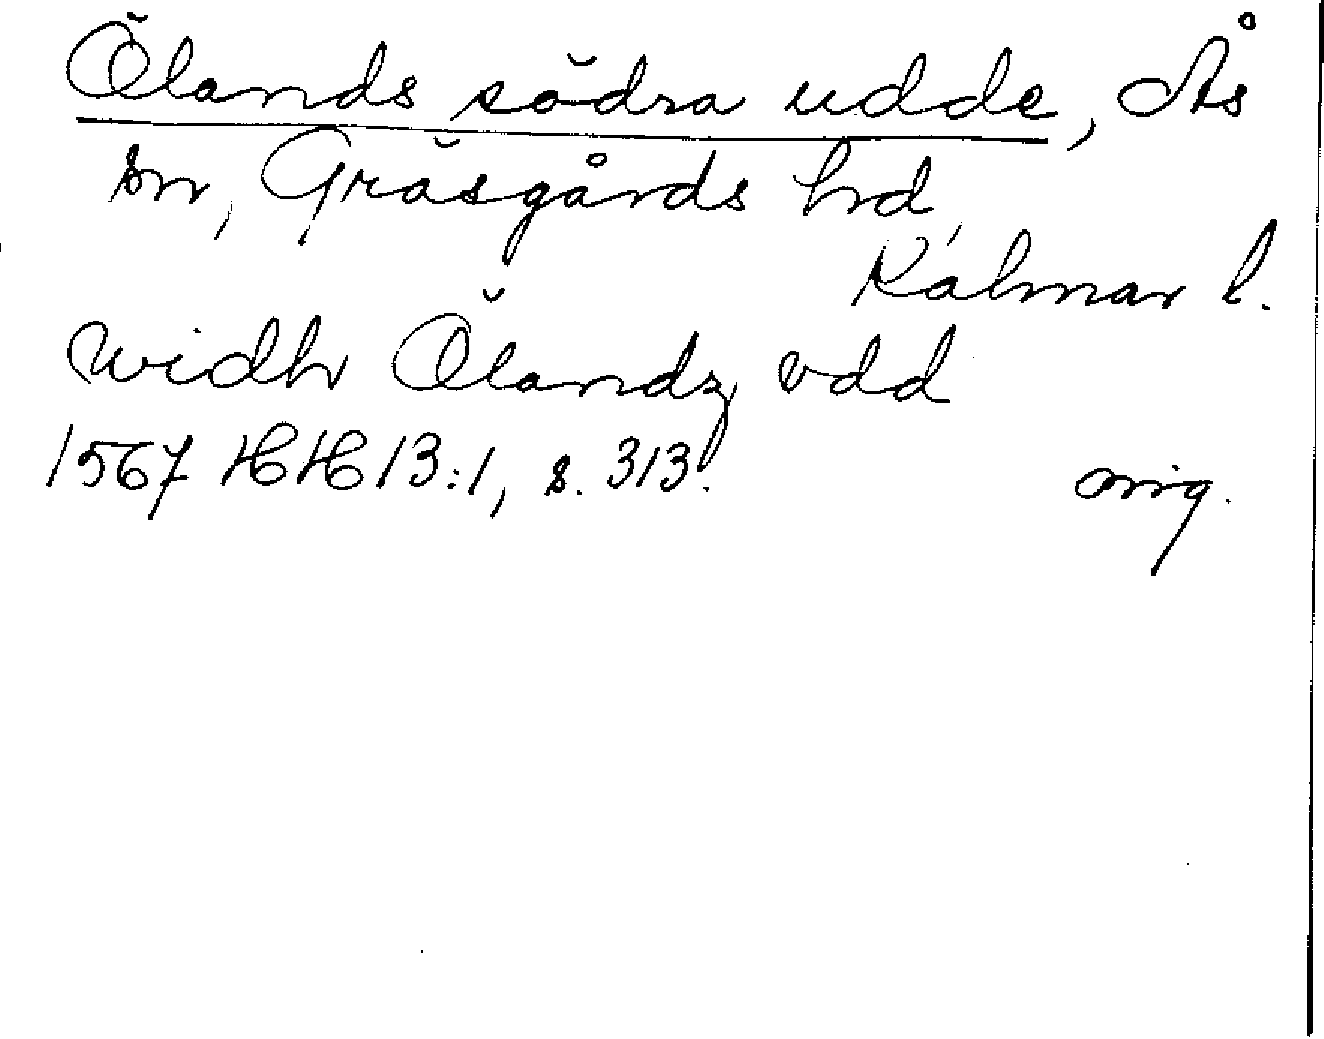 Ölands södra udde, Ås
sn, Gräsgårds hrd,
Kalmar l.
widh Ölandz vdd
1567 HH 13:1, s. 313.
orig.